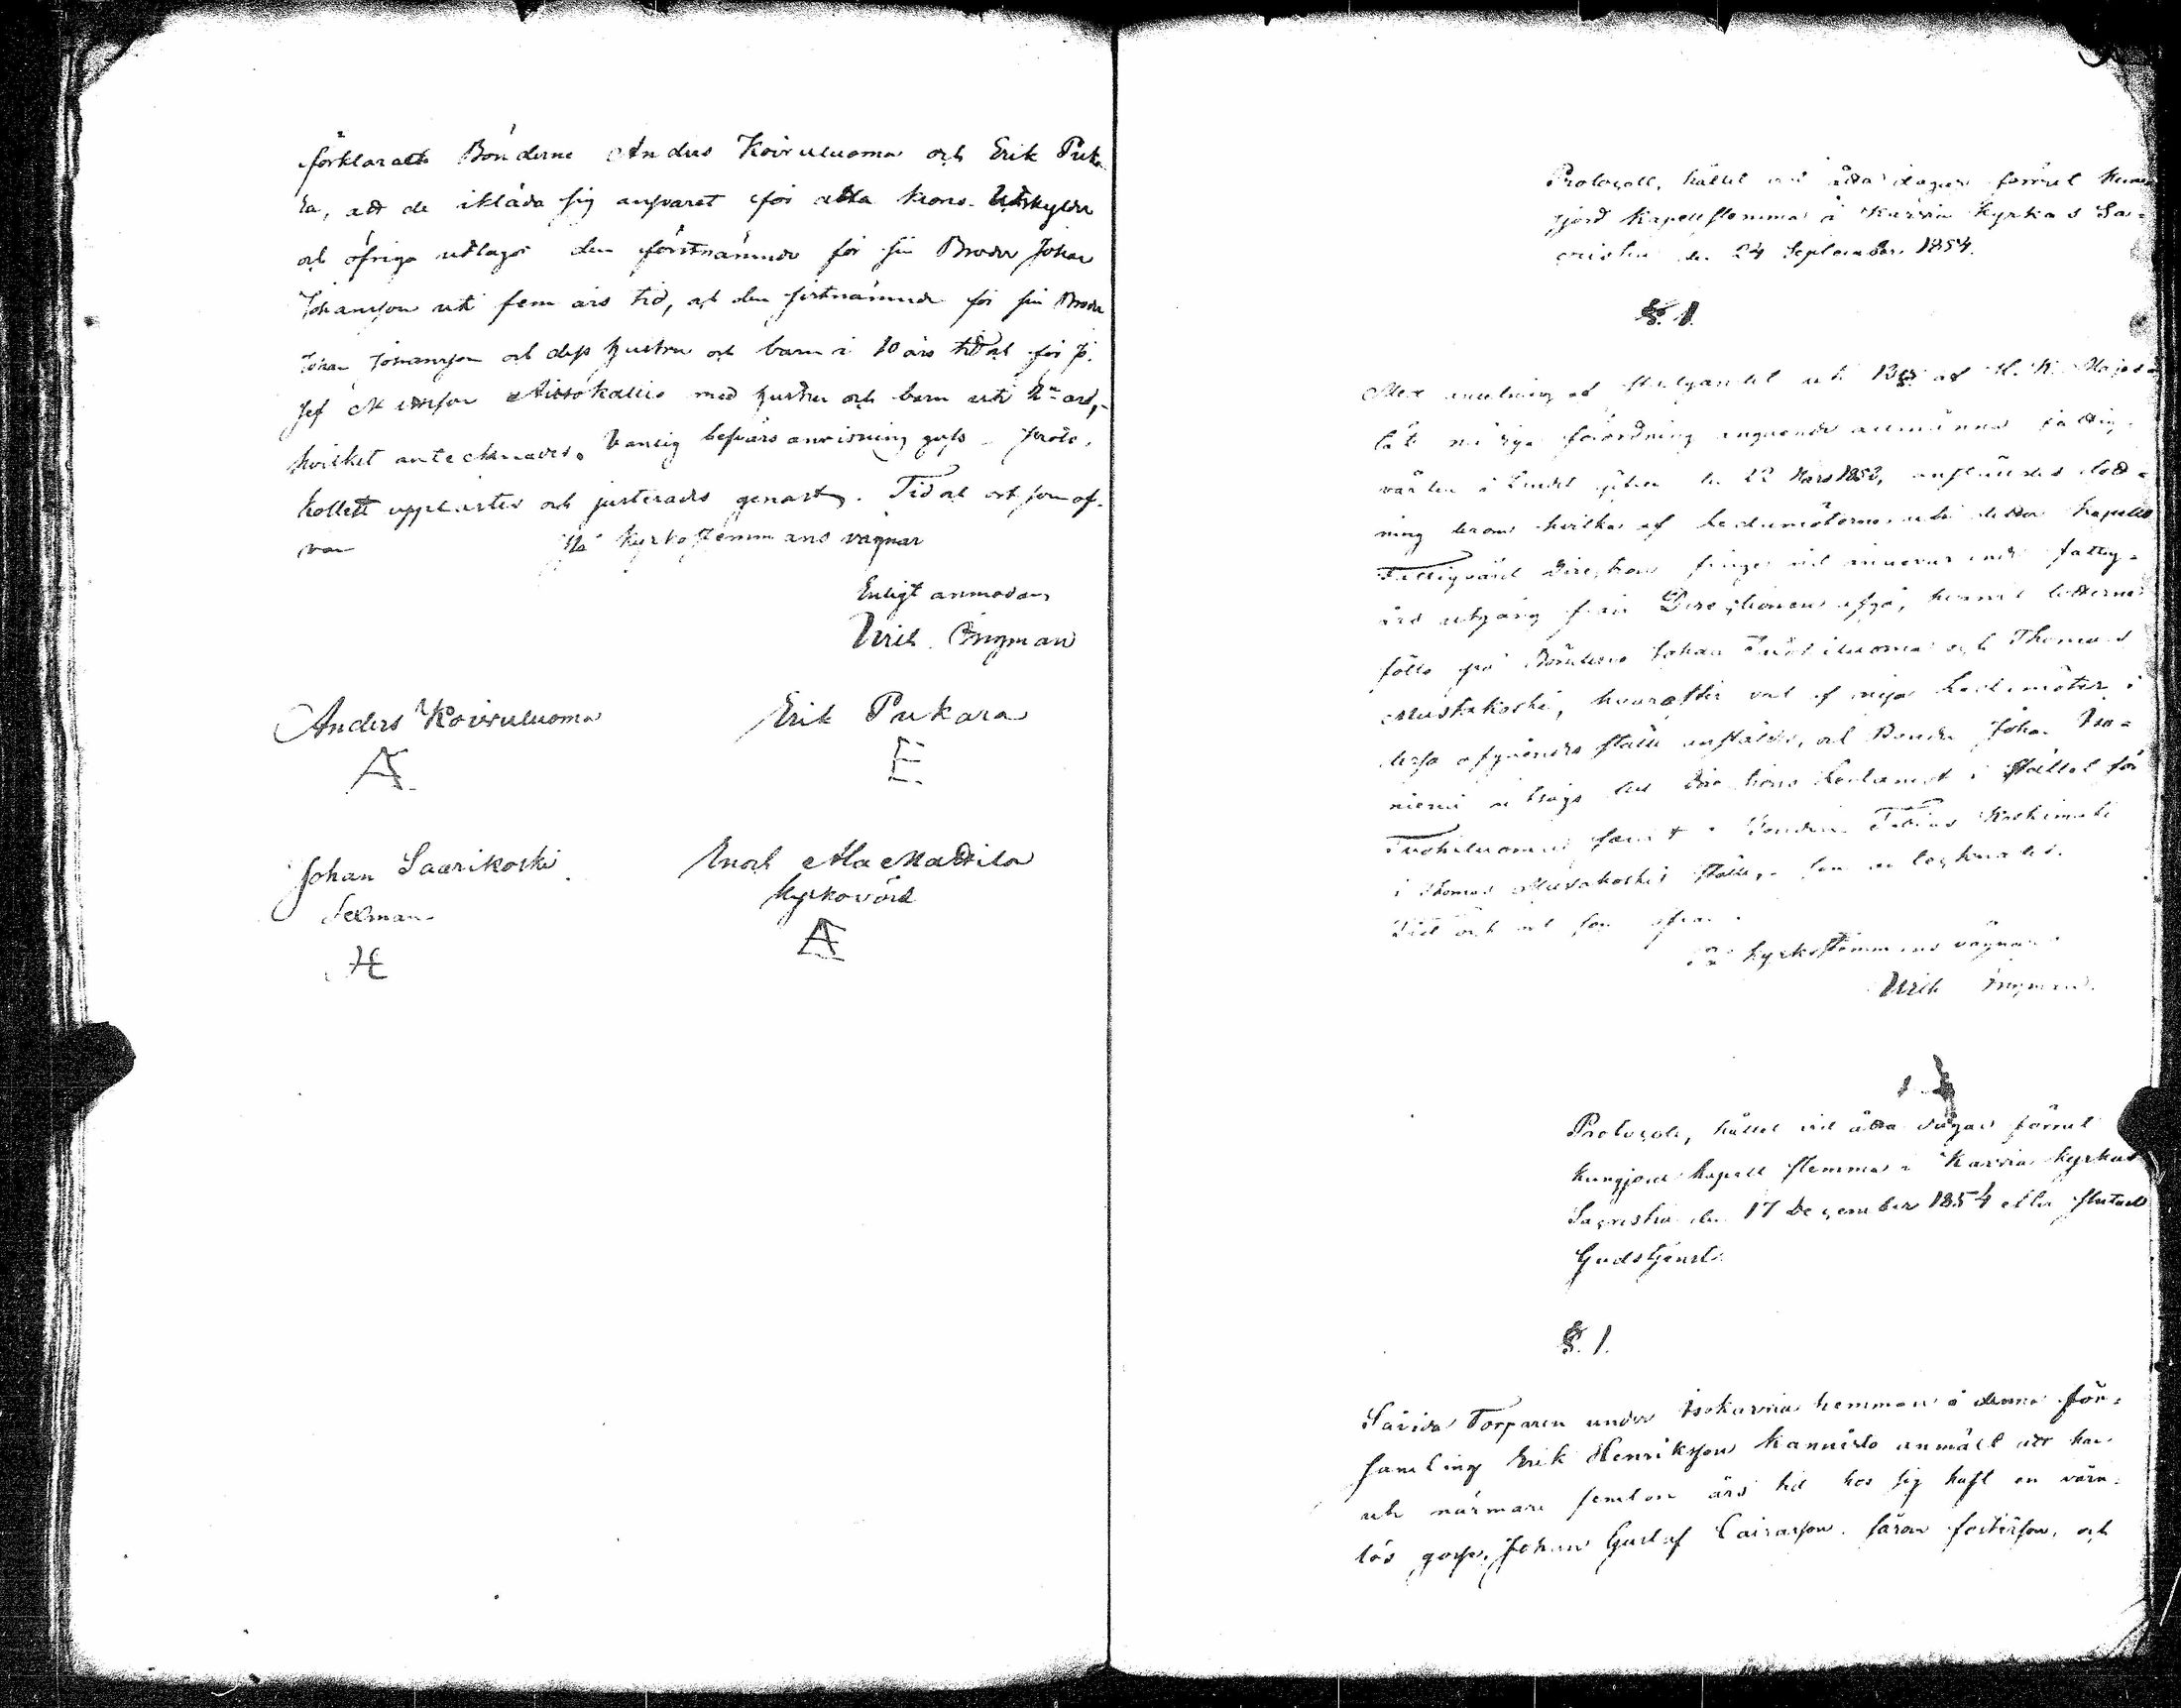 förklarade Bönderne Anders Koivuluoma och Erik Puka
ra, att de ikläda sig ansvaret för alla krono-Utskylder
och öfriga utlagor den förstnämnde för sin Broder Johan
Johansson uti fem års tid, och den sistnämnde för sin Broder
Johan Johansson och dess hustru och barn i 10 års tid och för
Aittokallio med hustru och barn uti 2ne års,
hvilket antecknades. Vanlig besvärs anvisning gafs. proto-
kollett upplästes och justerades genast. Tid och ort som of-
van På Kyrkostemmans vägnar
Enligt anmodan
Ulrik Ingman
Anders Koivuluoma Erik Pukara
A E
Johan Saarikoski Enoch Ala Mattila
Sexman Kyrkovärd
H AE
Protocoll, hållet vid åtta dagar förrut kun
gjord Kapellstemma i Karvia Kyrkas Sa-
cristia den 24 September 1854.
§. 1.
Med anledning af stadgandet uti af H. K. Majes
täts nådiga förordning angående allmänna fattig-
vården i Landet gifven den 22 Mars 1852, anställdes lott-
ning hvilka af Ledamöterne uti detta Kapells
Fattigvård Direction vid innevarande fattig-
års utgång från Directionen afgå, lotterne
föllo på Bönderne Johan Tuohiluoma och Thomas
Mustakoski, hvarefter val af nya Ledamöter i
dessa afgåendes ställe anstäldes, och Bonden Johan
niemi till Directions Ledamot i stället för
Tuohiluoma samt Bonden Tobias Koskimäki
i Thomas Mustakoskis ställe,
Tid och ort som ofvan.
På Kyrkostemmans vägnar
Ulrik Ingman.
Protocoll, hållet vid åtta dagar förrut
kungjord kapell stemma i Karvia Kyrkas
Sacristia den 17 December 1854 efter slutad
Gudstjenst.
§. 1.
Såvida Torparen under Isokarvia hemman i denna för-
samling Erik Henriksson Kannisto anmält att han
uti närmare femton års tid hos sig haft en värn-
lös gosse, Johan Gustaf såsom fosterson, och